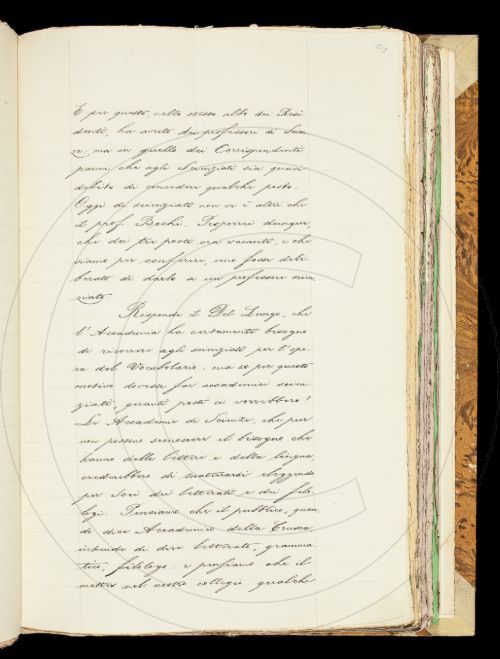 E per questo, nello stesso albo dei Resi
denti, ha avuto dei professori di Scien
ze; ma in quello dei Corrispondenti
parmi che agli Scienziati sia quasi
debito di concedere qualche posto.
Oggi di scienziati non vi è altri che
il prof. Bechi. Proporrei dunque,
che dei tre posti ora vacanti, e che
siamo per conferire, uno fosse deli-
berato di darlo a un professore scien
ziato.
Risponde il Del Lungo, che
l'Accademia ha certamente bisogno
di ricorrere agli scienziati per l'ope-
ra del Vocabolario: ma se per questo
motivo dovesse far accademici scien-
ziati, quanti posti ci vorrebbero!
Le Accademie di Scienze, che pur
non possono sconoscere il bisogno che
hanno delle lettere e della lingua,
crederebbero di snaturarsi eleggendo
per Soci dei letterati e dei filo-
logi. Pensiamo che il pubblico, quan
do dice Accademico della Crusca,
intende di dire letterato, gramma-
tico, filologo: e pensiamo che il
mettere nel nostro collegio qualche